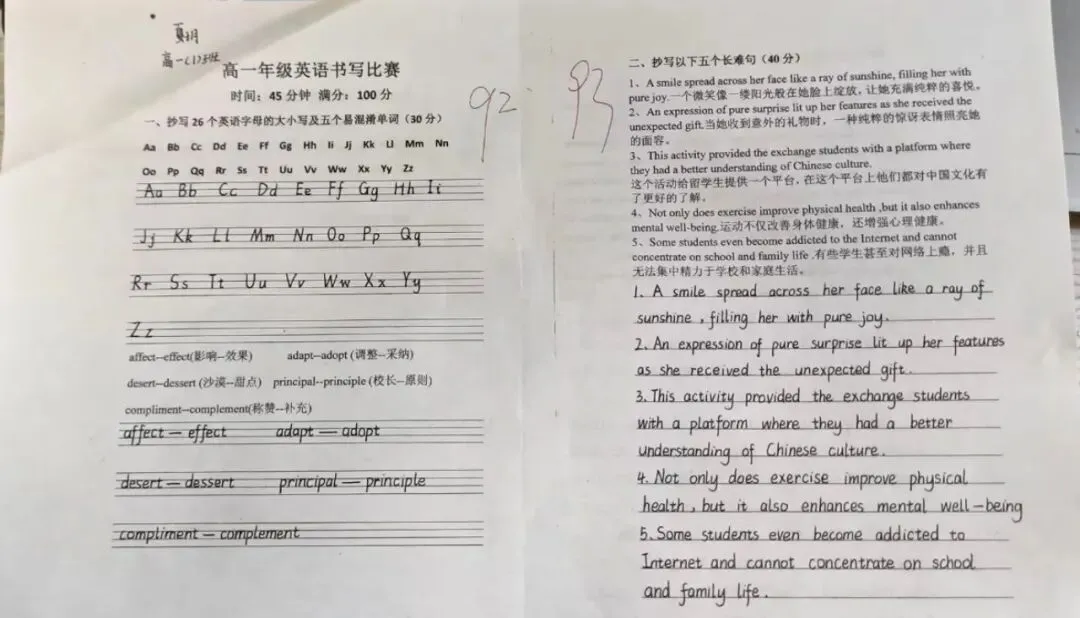 夏玥
高一(1)班
高一年级英语书写比赛
时间：45分钟 满分：100分
一、抄写26个英语字母的大小写及五个易混淆单词（30分）
Aa Bb Cc Dd Ee Ff Gg Hh Ii Jj Kk Ll Mm Nn
Oo Pp Qq Rr Ss Tt Uu Vv Ww Xx Yy Zz
Aa Bb Cc Dd Ee Ff Gg Hh Ii
Jj Kk Ll Mm Nn Oo Pp Qq
Rr Ss Tt Uu Vv Ww Xx Yy
Zz
affect--effect(影响--效果) adapt--adopt (调整--采纳)
desert--dessert (沙漠--甜点) principal--principle (校长--原则)
compliment--complement(称赞--补充)
affect — effect adapt — adopt
desert — dessert principal — principle
compliment — complement
92
93
二、抄写以下五个长难句（40分）
1、A smile spread across her face like a ray of sunshine, filling her with
pure joy.一个微笑像一缕阳光般在她脸上绽放，让她充满纯粹的喜悦。
2、An expression of pure surprise lit up her features as she received the
unexpected gift.当她收到意外的礼物时，一种纯粹的惊讶表情照亮她
的面容。
3、This activity provided the exchange students with a platform where
they had a better understanding of Chinese culture.
这个活动给留学生提供一个平台，在这个平台上他们都对中国文化有
了更好的了解。
4、Not only does exercise improve physical health ,but it also enhances
mental well-being.运动不仅改善身体健康，还增强心理健康。
5、Some students even become addicted to the Internet and cannot
concentrate on school and family life .有些学生甚至对网络上瘾，并且
无法集中精力于学校和家庭生活。
1. A smile spread across her face like a ray of
sunshine , filling her with pure joy.
2. An expression of pure surprise lit up her features
as she received the unexpected gift.
3. This activity provided the exchange students
with a platform where they had a better
understanding of Chinese culture.
4. Not only does exercise improve physical
health , but it also enhances mental well-being
5. Some students even become addicted to
Internet and cannot concentrate on school
and family life .